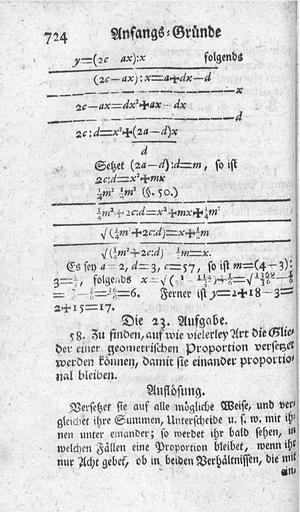 724 Anfangs-Gründe
y=(2c ax):x folgends
(2c-ax):x=a+dx-d
x
2c-ax=dx²+ax-dx
d
2c:d=x²+(2a-d)x
d
Setzet (2a-d):d=m, so ist
2c:d=x²+mx
¼m² ¼m² (§. 50.)
¼m²+2c:d=x²+mx+¼m²
√(¼m²+2c:d)=x+½m
√(¼m²+2c:d) ½m=x.
Es sey a=2, d=3, c=57, so ist m=(4-3):
3=⅓, folgends x=√(
=6. Ferner ist y=2+18-3=
2+15=17.
Die 23. Aufgabe.
58. Zu finden, auf wie vielerley Art die Glie-
der einer geometrischen Proportion versetzet
werden können, damit sie einander proportio-
nal bleiben.
Auflösung.
Versetzet sie auf alle mögliche Weise, und ver-
gleichet ihre Summen, Unterscheide u. s. w. mit ih-
nen unter einander; so werdet ihr bald sehen, in
welchen Fällen eine Proportion bleibet, wenn ihr
nur Acht gebet, ob in beiden Verhältnissen, die mit
ein-